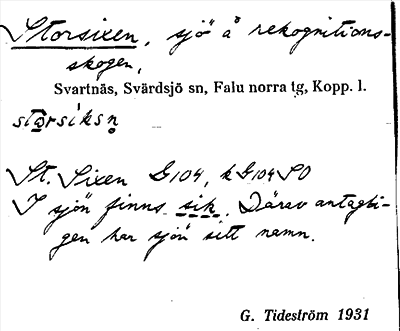 Storsixen, sjö å rekognitions-
skogen,
Svartnäs, Svärdsjö sn, Falu norra tg, Kopp. l.
St. Sixen G104, kG104SO
I sjön finns sik. Därav antagli-
gen har sjön sitt namn.
G. Tideström 1931